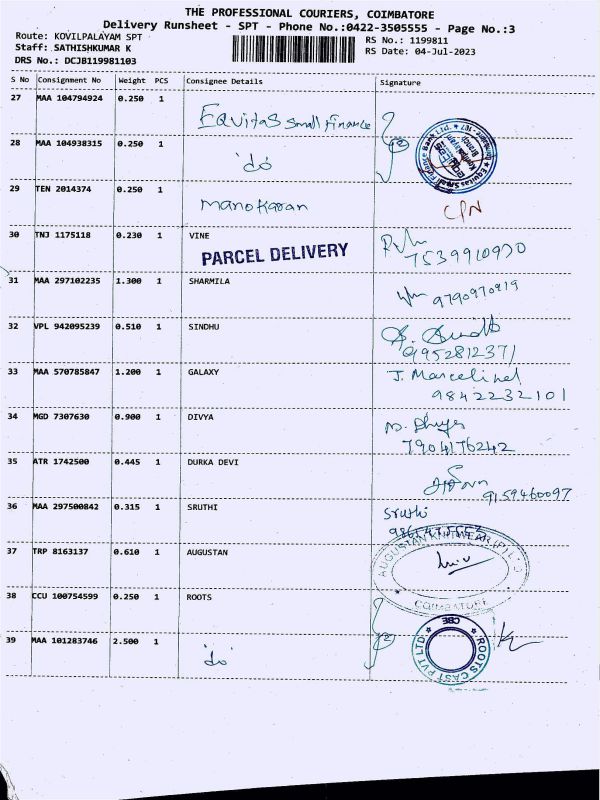 THE PROFESSIONAL COURIERS, COIMBATORE
Delivery Runsheet - SPT - Phone No.:0422-3505555 - Page No.:3
Route: KOVILPALAYAM SPT
RS No.: 1199811
Staff: SATHISHKUMAR K
RS Date: 04-Jul-2023
DRS No.: DCJB119981103
S No Consignment No Weight PCS Consignee Details Signature
27 MAA 104794924 0.250 1 Equitas small finance
28 MAA 104938315 0.250 1 "do"
29 TEN 2014374 0.250 1 Manoharan CPN
30 TNJ 1175118 0.230 1 VINE
PARCEL DELIVERY 7539910970
31 MAA 297102235 1.300 1 SHARMILA 9790970919
32 VPL 942095239 0.510 1 SINDHU
9952812371
33 MAA 570785847 1.200 1 GALAXY J. Marcelinel
9842232101
34 MGD 7307630 0.900 1 DIVYA
7904176242
35 ATR 1742500 0.445 1 DURKA DEVI
9159460097
36 MAA 297500842 0.315 1 SRUTHI Sruthi
37 TRP 8163137 0.610 1 AUGUSTAN AUGUSTAN KNITWEAR (P) LTD
COIMBATORE
38 CCU 100754599 0.250 1 ROOTS
39 MAA 101283746 2.500 1 "do" ROOTS CAST PVT LTD. CBE